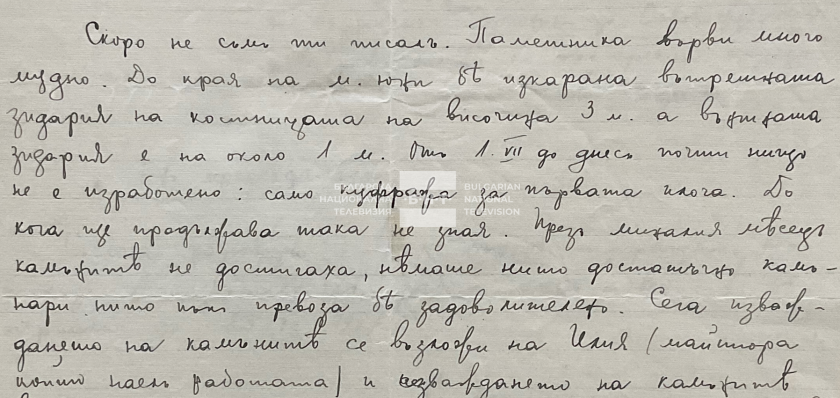 Скоро не съмъ ти писалъ. Паметника върви много
мудно. До края на м. юни бѣ изкарана вътрешната
зидария на костницата на височина 3 м. а външната
зидария е на около 1 м. Отъ 1. VII до днесь почти нищо
не е изработено: само за първата плоча. До
БЪЛГАРСКА НАЦИОНАЛНА ТЕЛЕВИЗИЯ БНТ BULGARIAN NATIONAL TELEVISION
кога ще продължава така не зная. Презъ миналия мѣсецъ
камънитѣ не достигаха, нѣмаше нито достатъчно камъ-
нари нито пъкъ превоза бѣ задоволителенъ. Сега изваж-
дането на камънитѣ се възложи на Илия (майстора
който наелъ работата) и изваждането на камънитѣ